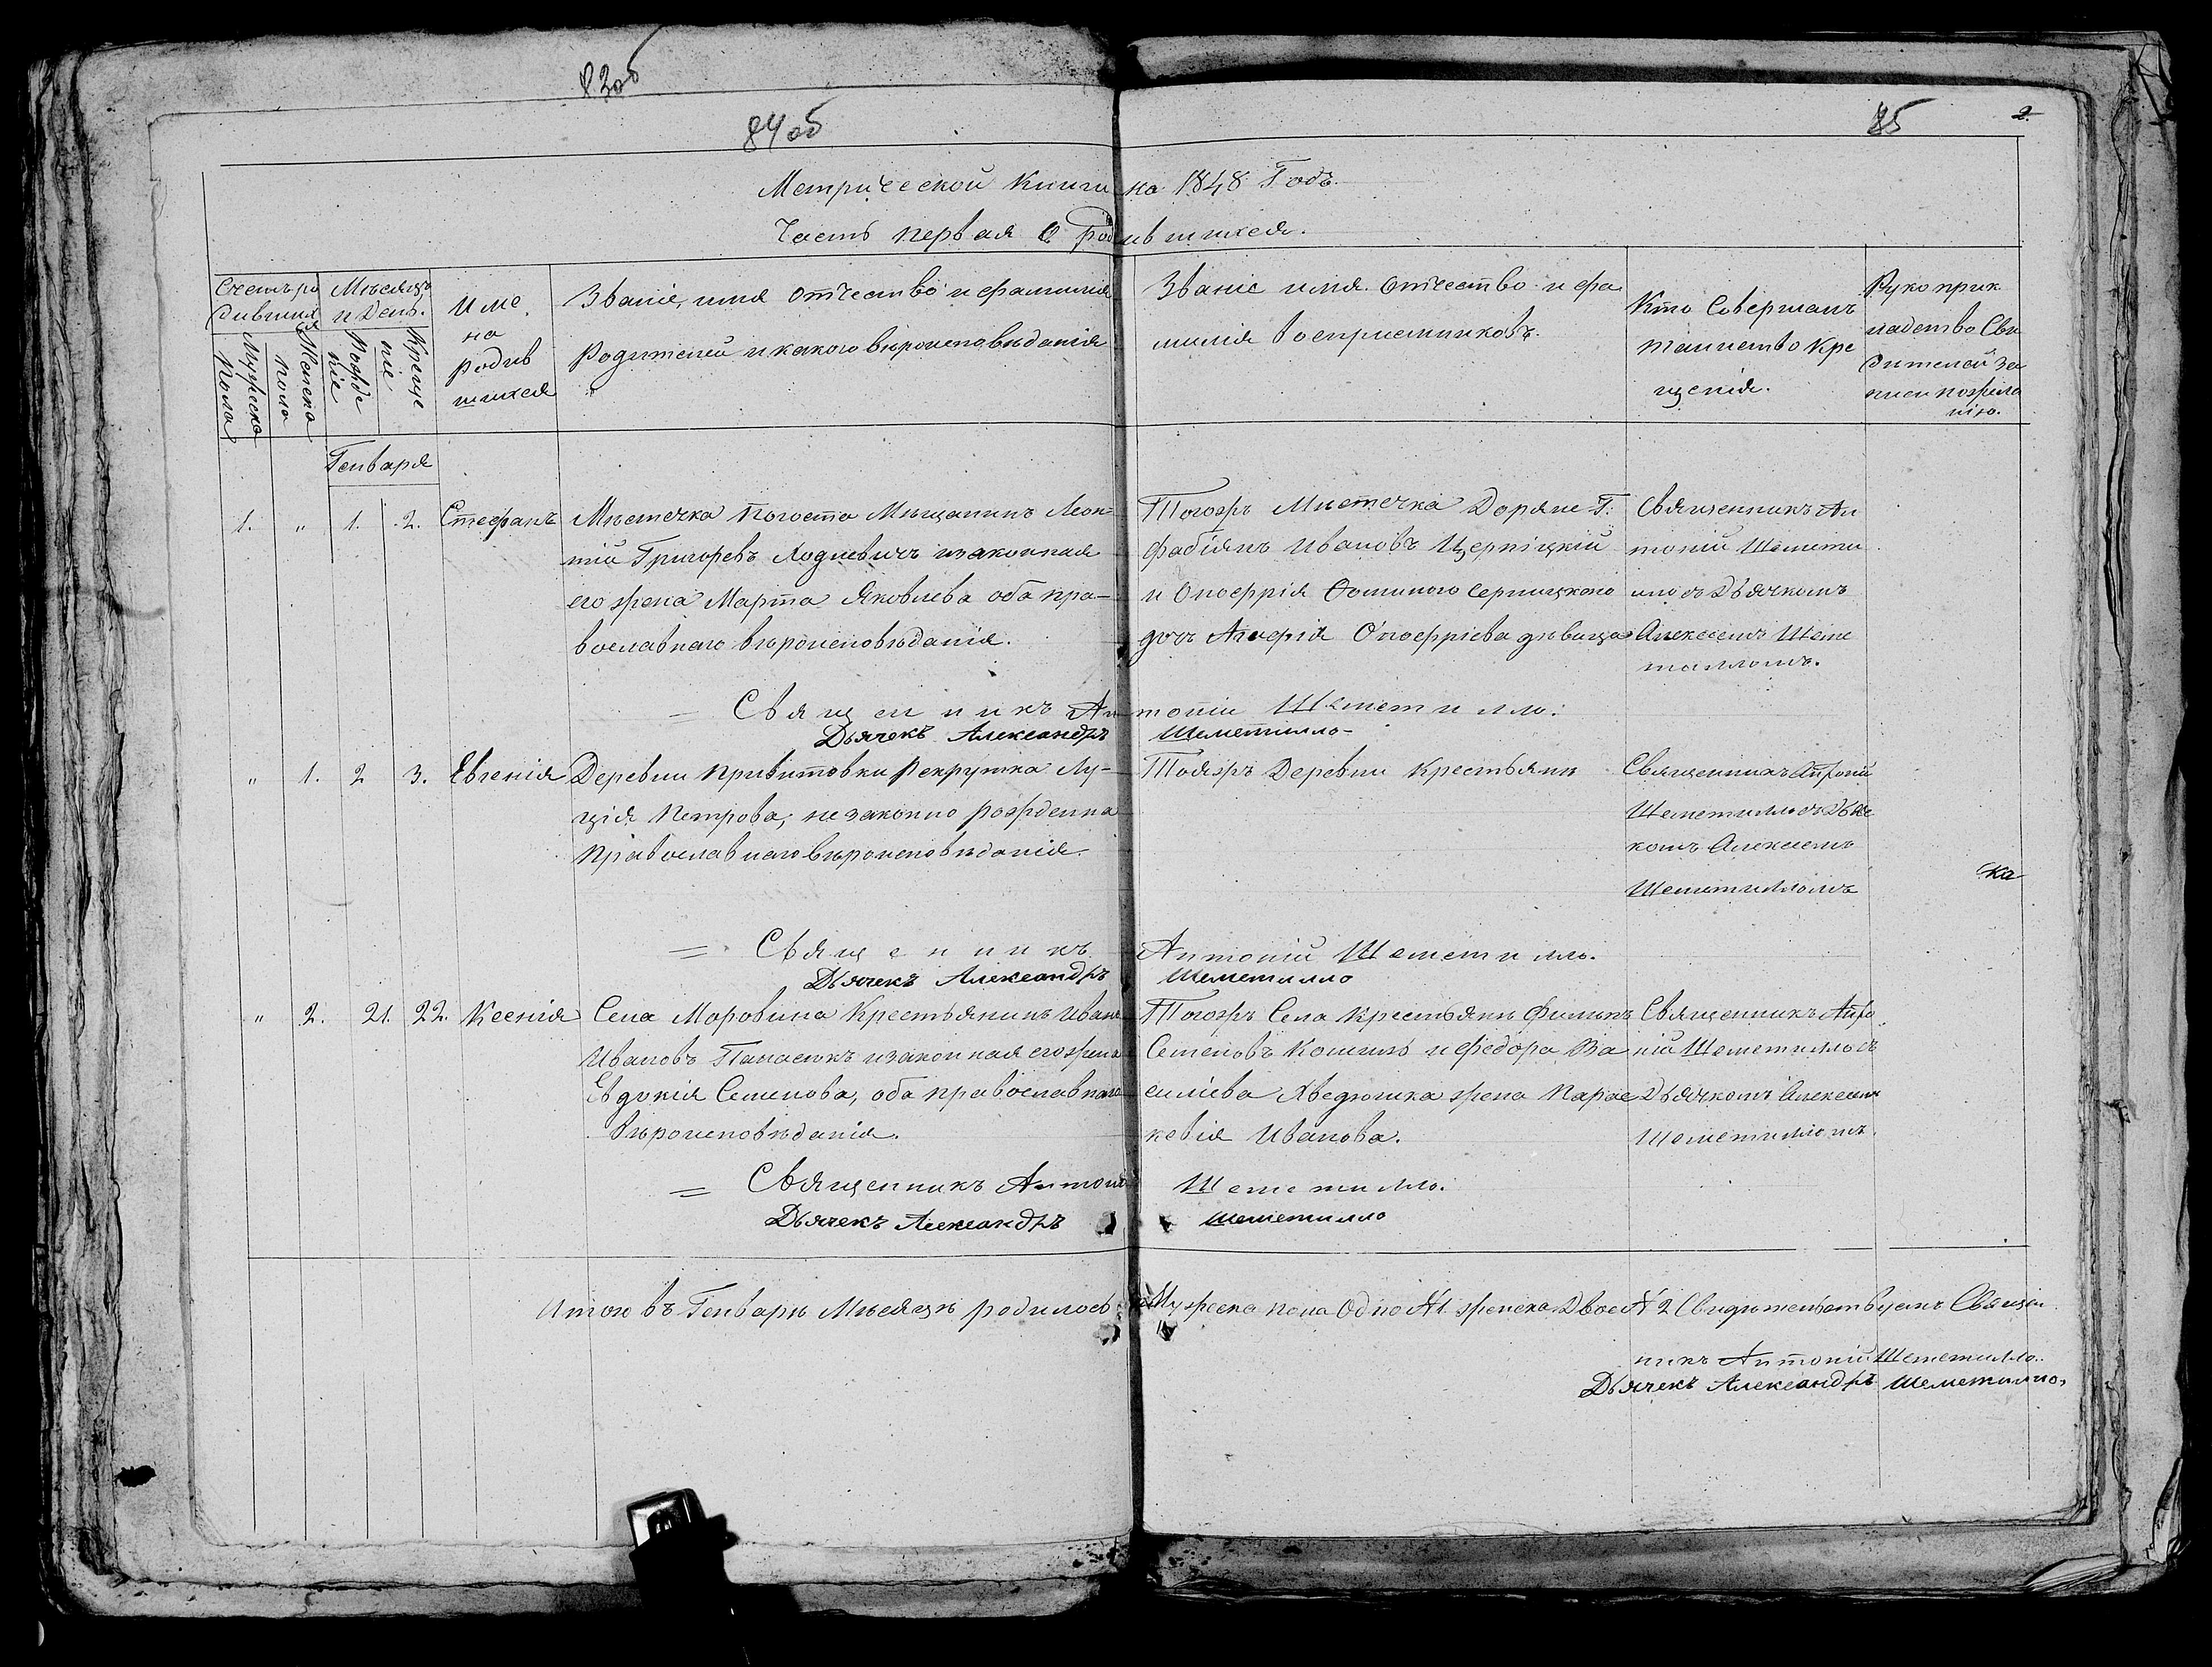 83об
84об
85
2.
Метрической Книги на 1848 Годъ.
Часть первая О Родившихся.
Счетъ ро
дившихся
Мужеска
пола
Женска
пола
Мѣсяцъ
и День.
Рожде
ніе
Креще
ніе
Име
на
родив
шихся
Званіе, имя отчество и фамилія
Родителей и какого вѣроисповѣданія
Званіе имя отчество и фа
милія Воспріемниковъ.
Кто Совершалъ
таинство Кре
щенія.
Рукоприк
ладство Сви
дителей за
писи по жела
нію.
Генваря
1. " 1. 2. Стефанъ
Мѣстечка Погоста Мѣщанинъ Леон-
тій Григорьевъ Лодзевичъ и законная
его жена Марта Яковлева оба пра-
вославнаго вѣроисповѣданія.
Тогожъ Мѣстечка Г.
Фабіянъ Ивановъ
и Онофрія
дочь Онофріева дѣвица
Священникъ Ан
тоній Шемети
ло съ Дьячкомъ
Алексеемъ Шеме
тилломъ.
= Священникъ Антоній Шеметилло.
Дьячекъ Александръ Шеметилло
" 1. 2 3. Евгенія
Деревни Привитовки Рекрутка Лу-
ція Петрова, незаконно рожденна
Православнаго вѣроисповѣданія.
Тояжъ Деревни Крестьянъ
Священникъ Антоній
Шеметилло съ Дьяч
комъ Алексеемъ
Шеметилломъ
ка
= Священникъ Антоній Шеметилло.
Дьячекъ Александръ Шеметилло
" 2. 21. 22. Ксенія
Села Моровина Крестьянинъ Иванъ
Ивановъ Панасюкъ и законная его жена
Евдокія Семенова, оба православнаго
вѣроисповѣданія.
Тогожъ Села Крестьянъ Филипъ
Семеновъ и Федора Ва
силіева Хведюшка жена Парас
кевія Иванова.
Священникъ Анто
ній Шеметилло съ
Дьячкомъ Алексеемъ
Шеметилломъ.
= Священникъ Антоній Шеметилло.
Дьячекъ Александръ Шеметилло
Итого въ Генварѣ Мѣсяцѣ родилось Мужеска пола Одно №1 женска Двое №2 Свидѣтельствуемъ Священ
никъ Антоній Шеметилло.
Дьячекъ Александръ Шеметилло,